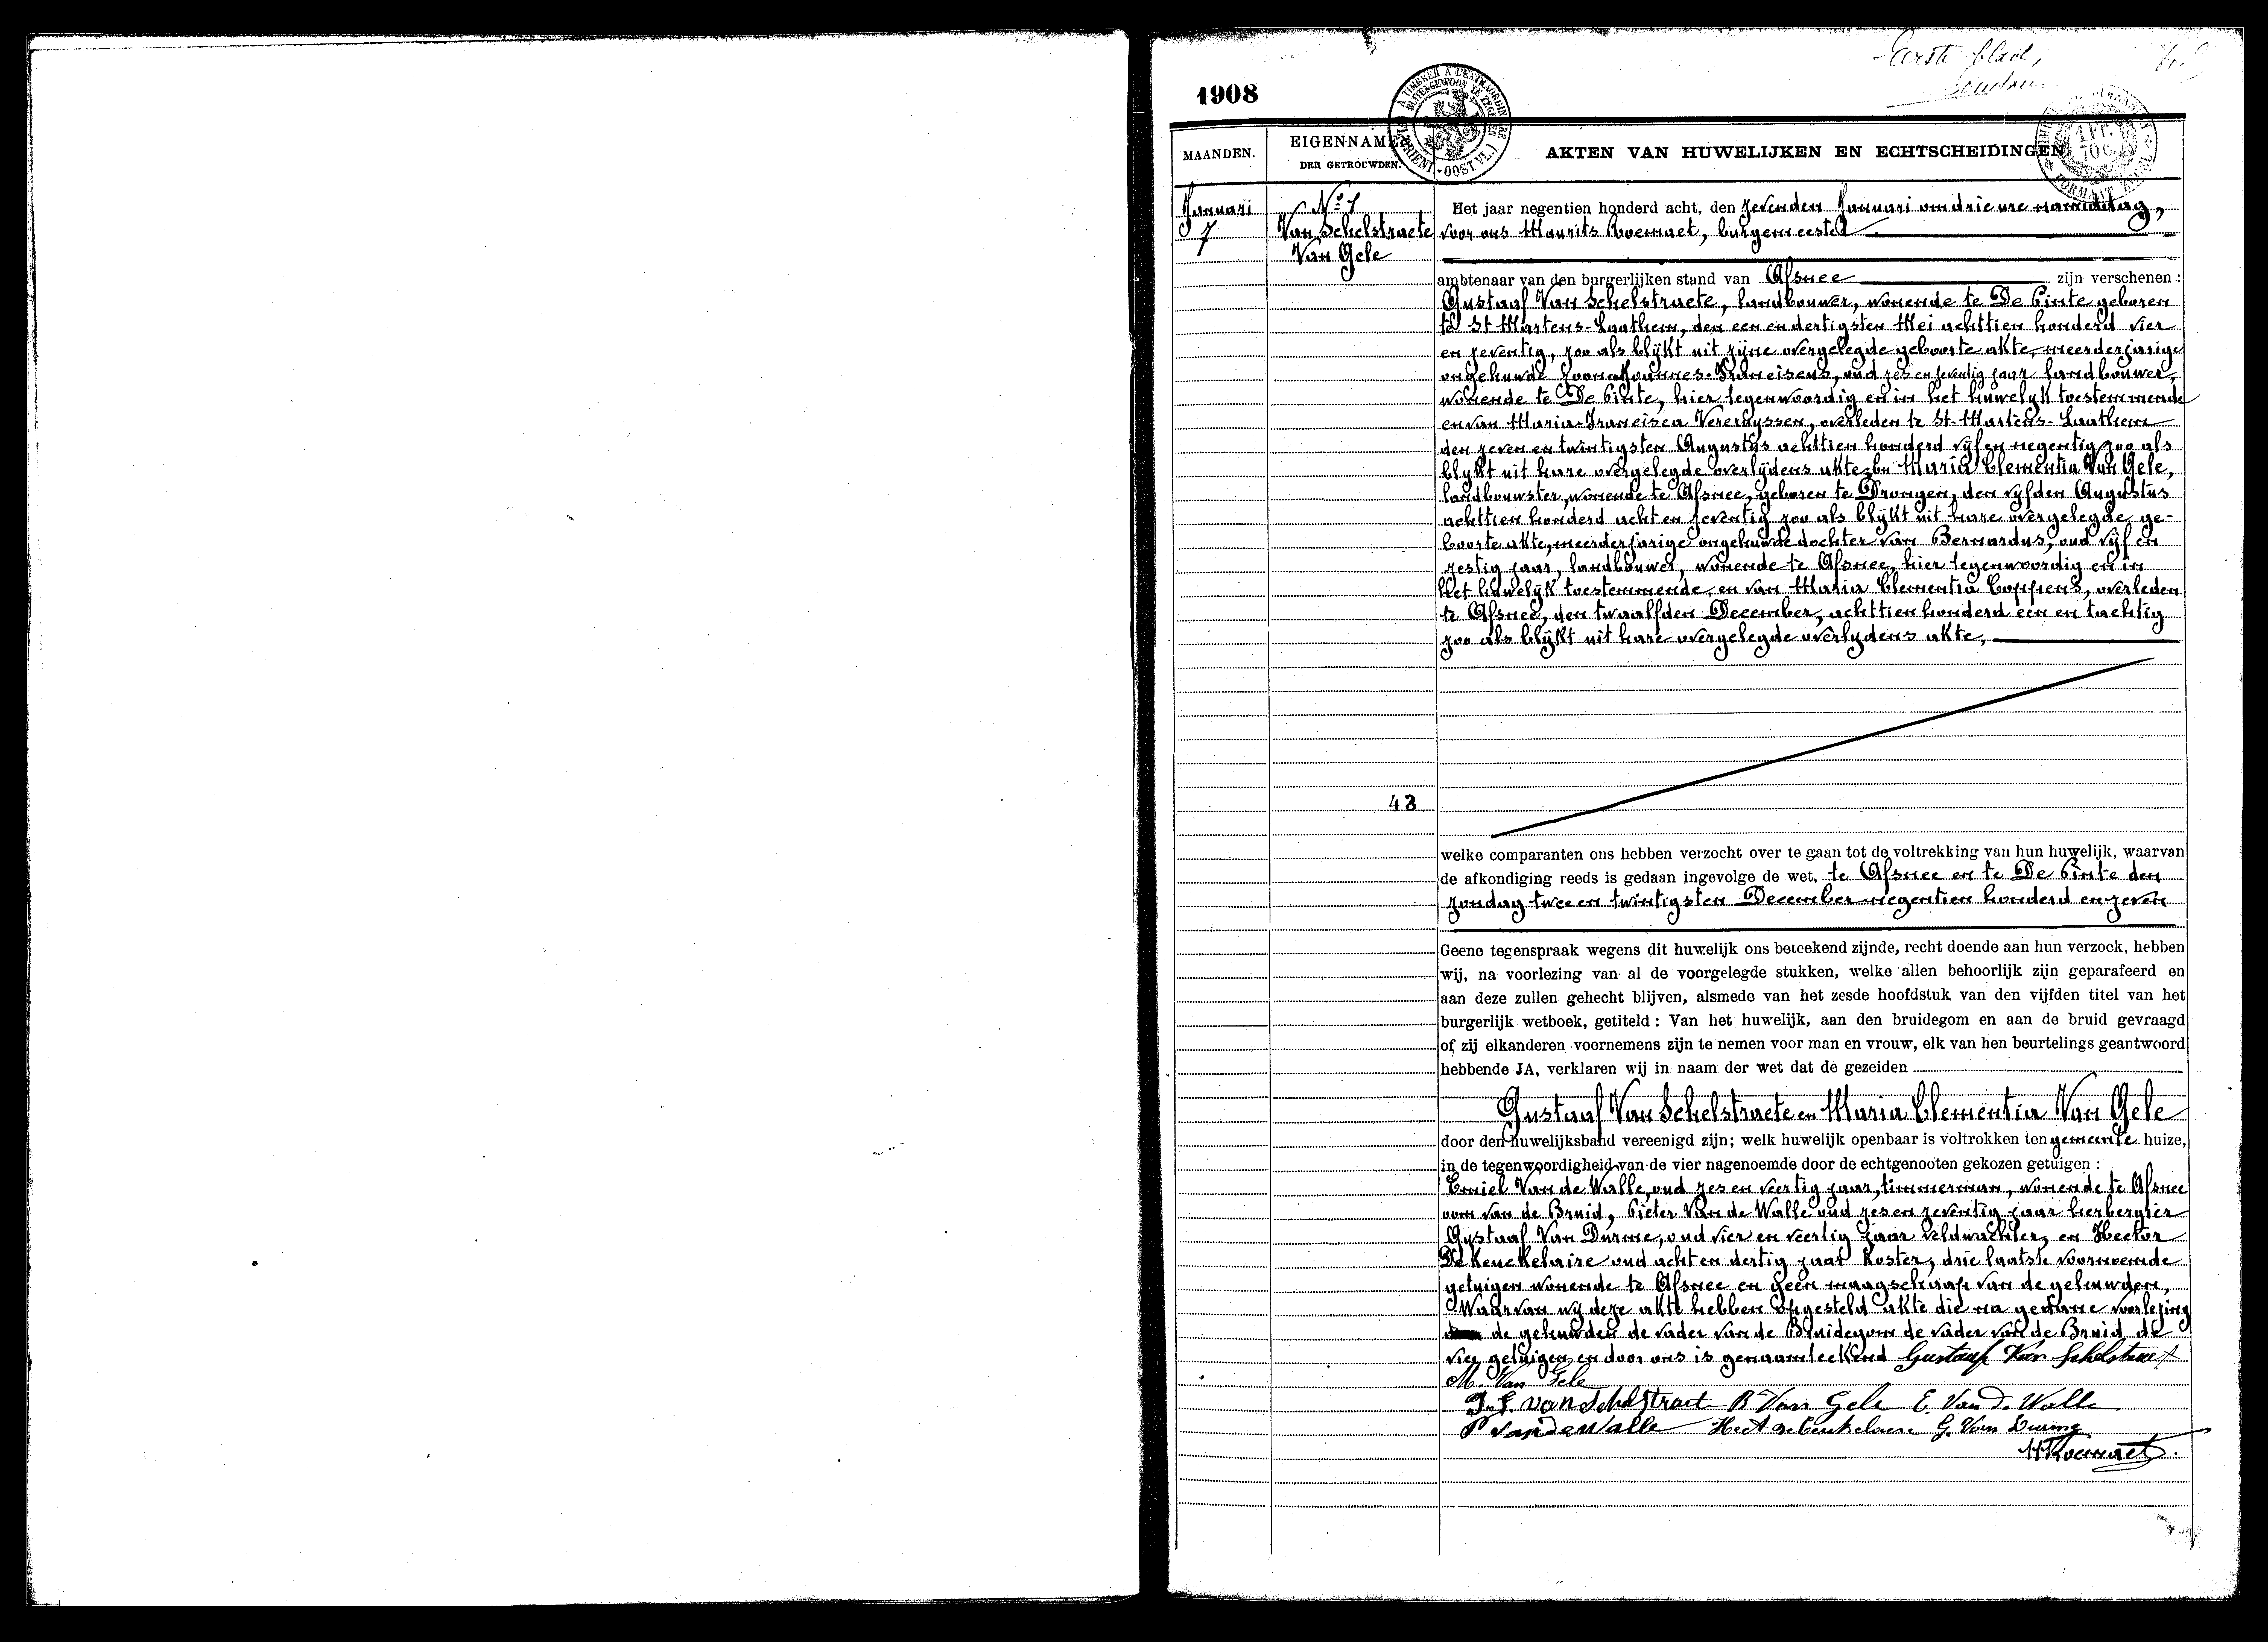 Eerste blad,
1908
A TIMBRER A L'EXTRAORDINAIRE
BUITENGEWOON TE ZEGELEN
(FL. ORIENT.-OOST VL.)
1 Fr.
70 C.
FORMAAT ZEGEL
MAANDEN.
EIGENNAMEN
DER GETROUWDEN.
AKTEN VAN HUWELIJKEN EN ECHTSCHEIDINGEN
Januari
7
No 1
Van Schelstraete
Van Gele
Het jaar negentien honderd acht, den zevenden Januari om drie ure namiddag,
voor ons Maurits Boemaet, burgemeester
ambtenaar van den burgerlijken stand van Afsnee zijn verschenen :
Gustaaf Van Schelstraete, landbouwer, wonende te De Pinte geboren
te St Martens-Laathem, den een en dertigsten Mei achttien honderd vier
en zeventig, zoo als blijkt uit zijne overgelegde geboorte akte, meerderjarige
ongehuwde zoon van Joannes-Franciscus, oud zes en zeventig jaar landbouwer,
wonende te De Pinte, hier tegenwoordig en in het huwelijk toestemmende
en van Maria-Francisca Vereruyssen, overleden te St-Martens-Laathem
den zeven en twintigsten Augustus achttien honderd vijf en negentig zoo als
blijkt uit hare overgelegde overlijdens akte En Maria Clementia Van Gele,
landbouwster, wonende te Afsnee, geboren te Drongen, den vijfden Augustus
achttien honderd acht en zeventig zoo als blijkt uit hare overgelegde ge-
boorte akte, meerderjarige ongehuwde dochter van Bernardus, oud vijf en
zestig jaar, landbouwer, wonende te Afsnee, hier tegenwoordig en in
het huwelijk toestemmende, en van Maria Clementia Coppens, overleden
te Afsnee, den twaalfden December, achttien honderd een en tachtig
zoo als blijkt uit hare overgelegde overlijdens akte,
43
welke comparanten ons hebben verzocht over te gaan tot de voltrekking van hun huwelijk, waarvan
de afkondiging reeds is gedaan ingevolge de wet, te Afsnee en te De Pinte den
zondag twee en twintigsten December negentien honderd en zeven
Geene tegenspraak wegens dit huwelijk ons beteekend zijnde, recht doende aan hun verzoek, hebben
wij, na voorlezing van al de voorgelegde stukken, welke allen behoorlijk zijn geparafeerd en
aan deze zullen gehecht blijven, alsmede van het zesde hoofdstuk van den vijfden titel van het
burgerlijk wetboek, getiteld : Van het huwelijk, aan den bruidegom en aan de bruid gevraagd
of zij elkanderen voornemens zijn te nemen voor man en vrouw, elk van hen beurtelings geantwoord
hebbende JA, verklaren wij in naam der wet dat de gezeiden
Gustaaf Van Schelstraete en Maria Clementia Van Gele
door den huwelijksband vereenigd zijn; welk huwelijk openbaar is voltrokken ten gemeente huize,
in de tegenwoordigheid van de vier nagenoemde door de echtgenooten gekozen getuigen :
Emiel Van de Walle, oud zes en veertig jaar, timmerman, wonende te Afsnee
oom van de Bruid, Pieter Van de Walle oud zes en zeventig jaar herbergier
Gustaaf Van Durme, oud vier en veertig jaar veldwachter, en Hector
De Keuckelaire oud acht en dertig jaar koster, drie laatste voornoemde
getuigen wonende te Afsnee en geen maagschaap van de gehuwden,
Waarvan wij deze akte hebben opgesteld akte die na gedane voorlezing
de gehuwden de vader van de Bruidegom de vader van de Bruid de
vier getuigen en door ons is genaamteekend Gustaaf Van Schelstraet
M. Van Gele
J. F. van Schelstraet Bd Van Gele E. Van d. Walle
P Vandewalle Hect Dekeukelaere G. Van Durme